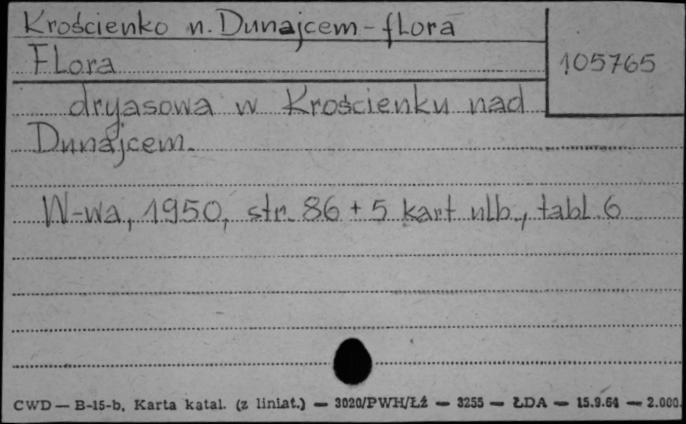 Krościenko n. Dunajcem - flora
Flora
105765
dryasowa w Krościenku nad
Dunajcem.
W-wa, 1950, str. 86 + 5 kart nlb., tabl. 6
CWD — B-15-b, Karta katal. (z liniat.) — 3020/PWH/Łż — 3255 — ŁDA — 15.9.64 — 2.000.